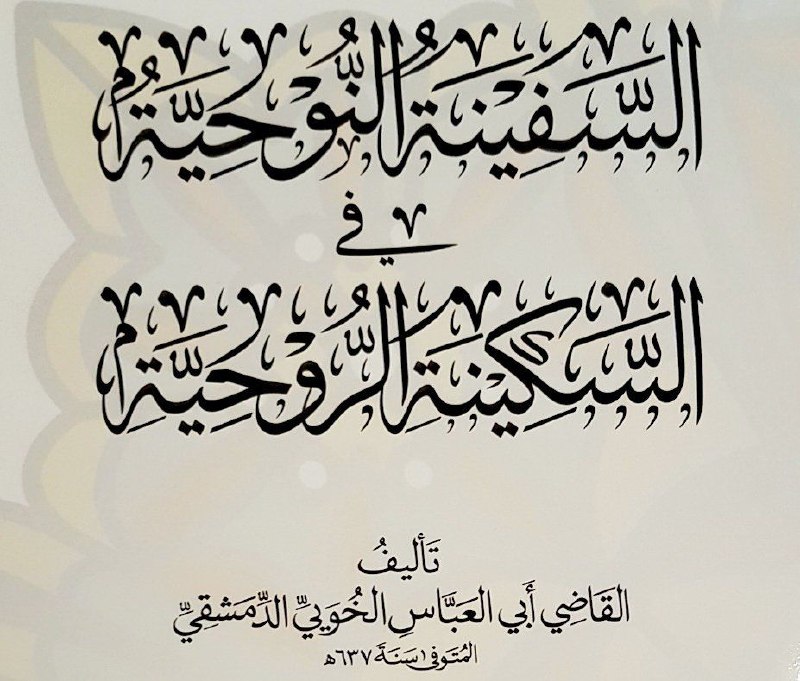 السَّفِينَةُ النُّوْحِيَّةُ
في
السَّكِينَةِ الرُّوْحِيَّةِ
تَأليفُ
القَاضِي أَبي العَبَّاسِ الخُوَيِيِّ الدِّمَشقِيِّ
المُتَوفى سَنَةَ ٦٣٧ھ